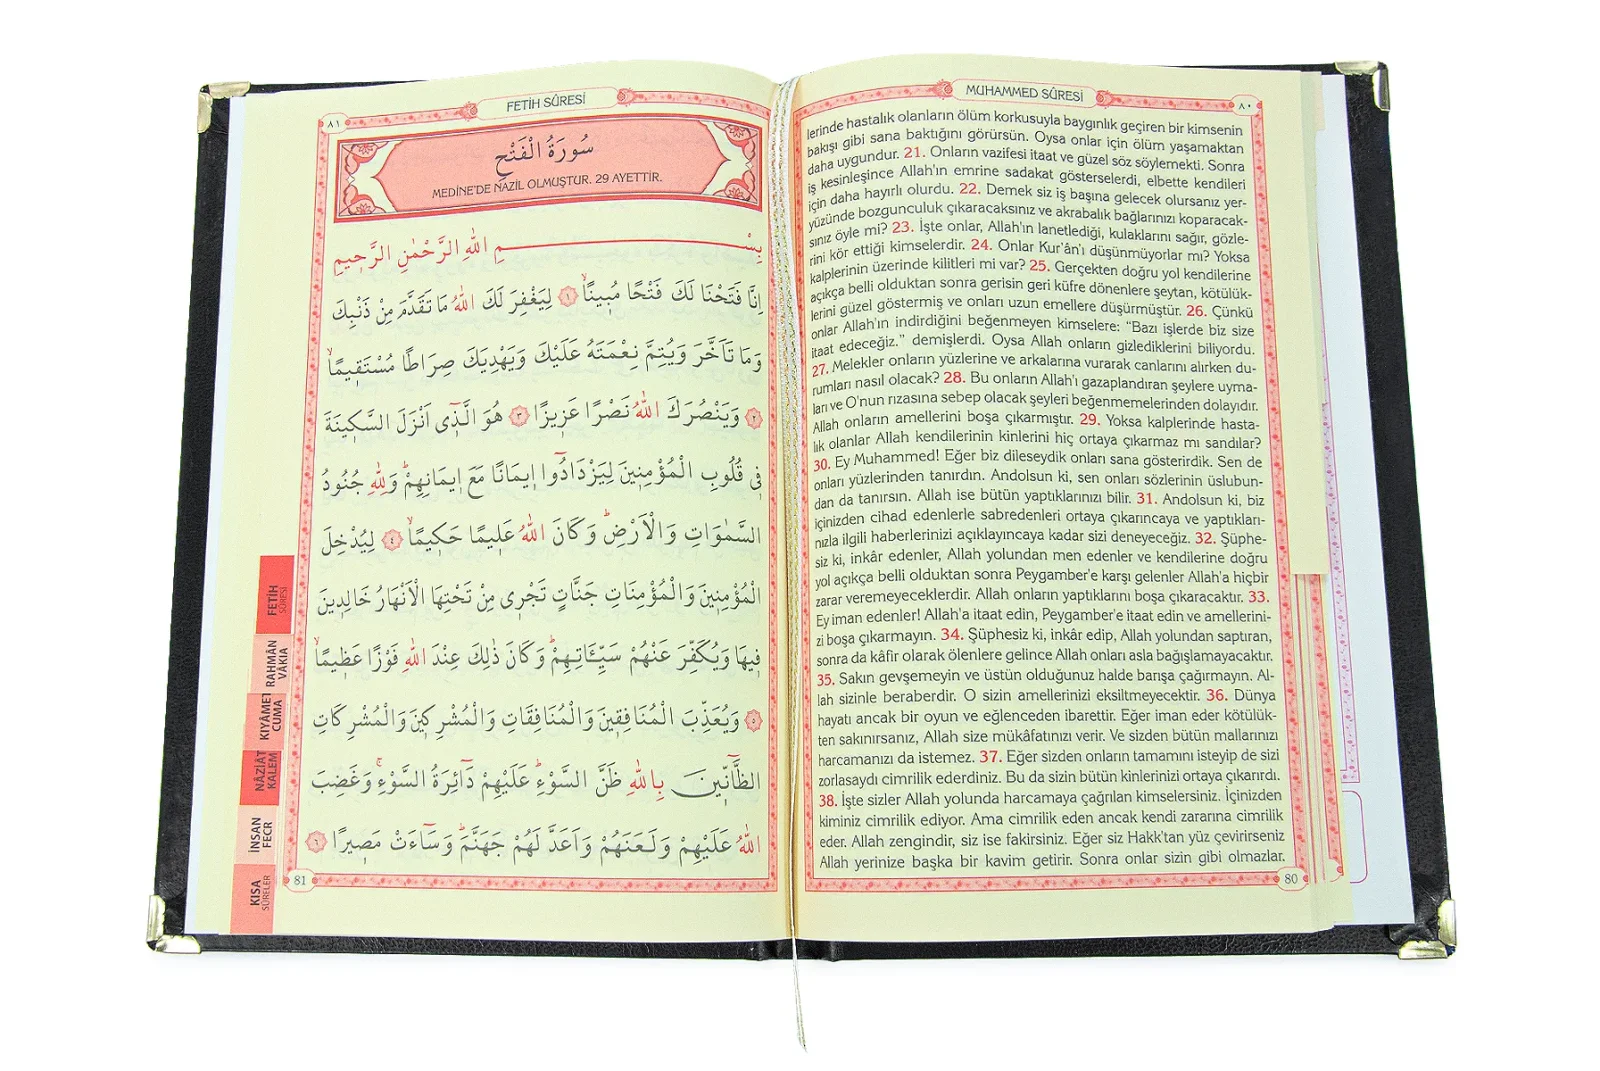 MUHAMMED SÛRESİ
٨٠
lerinde hastalık olanların ölüm korkusuyla baygınlık geçiren bir kimsenin
bakışı gibi sana baktığını görürsün. Oysa onlar için ölüm yaşamaktan
daha uygundur. 21. Onların vazifesi itaat ve güzel söz söylemekti. Sonra
iş kesinleşince Allah'ın emrine sadakat gösterselerdi, elbette kendileri
için daha hayırlı olurdu. 22. Demek siz iş başına gelecek olursanız yer-
yüzünde bozgunculuk çıkaracaksınız ve akrabalık bağlarınızı koparacak-
sınız öyle mi? 23. İşte onlar, Allah'ın lanetlediği, kulaklarını sağır, gözle-
rini kör ettiği kimselerdir. 24. Onlar Kur'ân'ı düşünmüyorlar mı? Yoksa
kalplerinin üzerinde kilitleri mi var? 25. Gerçekten doğru yol kendilerine
açıkça belli olduktan sonra gerisin geri küfre dönenlere şeytan, kötülük-
lerini güzel göstermiş ve onları uzun emellere düşürmüştür. 26. Çünkü
onlar Allah'ın indirdiğini beğenmeyen kimselere: "Bazı işlerde biz size
itaat edeceğiz." demişlerdi. Oysa Allah onların gizlediklerini biliyordu.
27. Melekler onların yüzlerine ve arkalarına vurarak canlarını alırken du-
rumları nasıl olacak? 28. Bu onların Allah'ı gazaplandıran şeylere uyma-
ları ve O'nun rızasına sebep olacak şeyleri beğenmemelerinden dolayıdır.
Allah onların amellerini boşa çıkarmıştır. 29. Yoksa kalplerinde hasta-
lık olanlar Allah kendilerinin kinlerini hiç ortaya çıkarmaz mı sandılar?
30. Ey Muhammed! Eğer biz dileseydik onları sana gösterirdik. Sen de
onları yüzlerinden tanırdın. Andolsun ki, sen onları sözlerinin üslubun-
dan da tanırsın. Allah ise bütün yaptıklarınızı bilir. 31. Andolsun ki, biz
içinizden cihad edenlerle sabredenleri ortaya çıkarıncaya ve yaptıkları-
nızla ilgili haberlerinizi açıklayıncaya kadar sizi deneyeceğiz. 32. Şüphe-
siz ki, inkâr edenler, Allah yolundan men edenler ve kendilerine doğru
yol açıkça belli olduktan sonra Peygamber'e karşı gelenler Allah'a hiçbir
zarar veremeyeceklerdir. Allah onların yaptıklarını boşa çıkaracaktır. 33.
Ey iman edenler! Allah'a itaat edin, Peygamber'e itaat edin ve amellerini-
zi boşa çıkarmayın. 34. Şüphesiz ki, inkâr edip, Allah yolundan saptıran,
sonra da kâfir olarak ölenlere gelince Allah onları asla bağışlamayacaktır.
35. Sakın gevşemeyin ve üstün olduğunuz halde barışa çağırmayın. Al-
lah sizinle beraberdir. O sizin amellerinizi eksiltmeyecektir. 36. Dünya
hayatı ancak bir oyun ve eğlenceden ibarettir. Eğer iman eder kötülük-
ten sakınırsanız, Allah size mükâfatınızı verir. Ve sizden bütün mallarınızı
harcamanızı da istemez. 37. Eğer sizden onların tamamını isteyip de sizi
zorlasaydı cimrilik ederdiniz. Bu da sizin bütün kinlerinizi ortaya çıkarırdı.
38. İşte sizler Allah yolunda harcamaya çağrılan kimselersiniz. İçinizden
kiminiz cimrilik ediyor. Ama cimrilik eden ancak kendi zararına cimrilik
eder. Allah zengindir, siz ise fakirsiniz. Eğer siz Hakk'tan yüz çevirirseniz
Allah yerinize başka bir kavim getirir. Sonra onlar sizin gibi olmazlar.
80
FETİH SÛRESİ
٨١
سُورَةُ الْفَتْحِ
MEDİNE'DE NÂZİL OLMUŞTUR. 29 AYETTİR.
بِسْمِ اللهِ الرَّحْمٰنِ الرَّحِيمِ
اِنَّا فَتَحْنَا لَكَ فَتْحًا مُبِينًاۙ ﴿١﴾ لِيَغْفِرَ لَكَ اللهُ مَا تَقَدَّمَ مِنْ ذَنْبِكَ
وَمَا تَاَخَّرَ وَيُتِمَّ نِعْمَتَهُ عَلَيْكَ وَيَهْدِيَكَ صِرَاطًا مُسْتَقِيمًاۙ
﴿٢﴾ وَيَنْصُرَكَ اللهُ نَصْرًا عَزِيزًا ﴿٣﴾ هُوَ الَّذِٓى اَنْزَلَ السَّكِينَةَ
فِى قُلُوبِ الْمُؤْمِنِينَ لِيَزْدَادُٓوا اِيمَانًا مَعَ اِيمَانِهِمْۜ وَلِلّٰهِ جُنُودُ
السَّمٰوَاتِ وَالْاَرْضِۜ وَكَانَ اللهُ عَلِيمًا حَكِيمًاۙ ﴿٤﴾ لِيُدْخِلَ
الْمُؤْمِنِينَ وَالْمُؤْمِنَاتِ جَنَّاتٍ تَجْرِى مِنْ تَحْتِهَا الْاَنْهَارُ خَالِدِينَ
فِيهَا وَيُكَفِّرَ عَنْهُمْ سَيِّـَٔاتِهِمْۜ وَكَانَ ذٰلِكَ عِنْدَ اللهِ فَوْزًا عَظِيمًاۙ
﴿٥﴾ وَيُعَذِّبَ الْمُنَافِقِينَ وَالْمُنَافِقَاتِ وَالْمُشْرِكِينَ وَالْمُشْرِكَاتِ
الظَّٓانِّينَ بِاللهِ ظَنَّ السَّوْءِۜ عَلَيْهِمْ دَٓائِرَةُ السَّوْءِۚ وَغَضِبَ
اللهُ عَلَيْهِمْ وَلَعَنَهُمْ وَاَعَدَّ لَهُمْ جَهَنَّمَۜ وَسَٓاءَتْ مَصِيرًا ﴿٦﴾
81
FETİH SÛRESİ
RAHMÂN VÂKIA
KIYÂMET CUMA
NÂZİÂT KALEM
İNSAN FECR
KISA SÛRELER